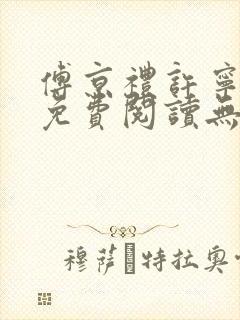 傅京禮許寧
免費閱讀無
穆薩·特拉奧